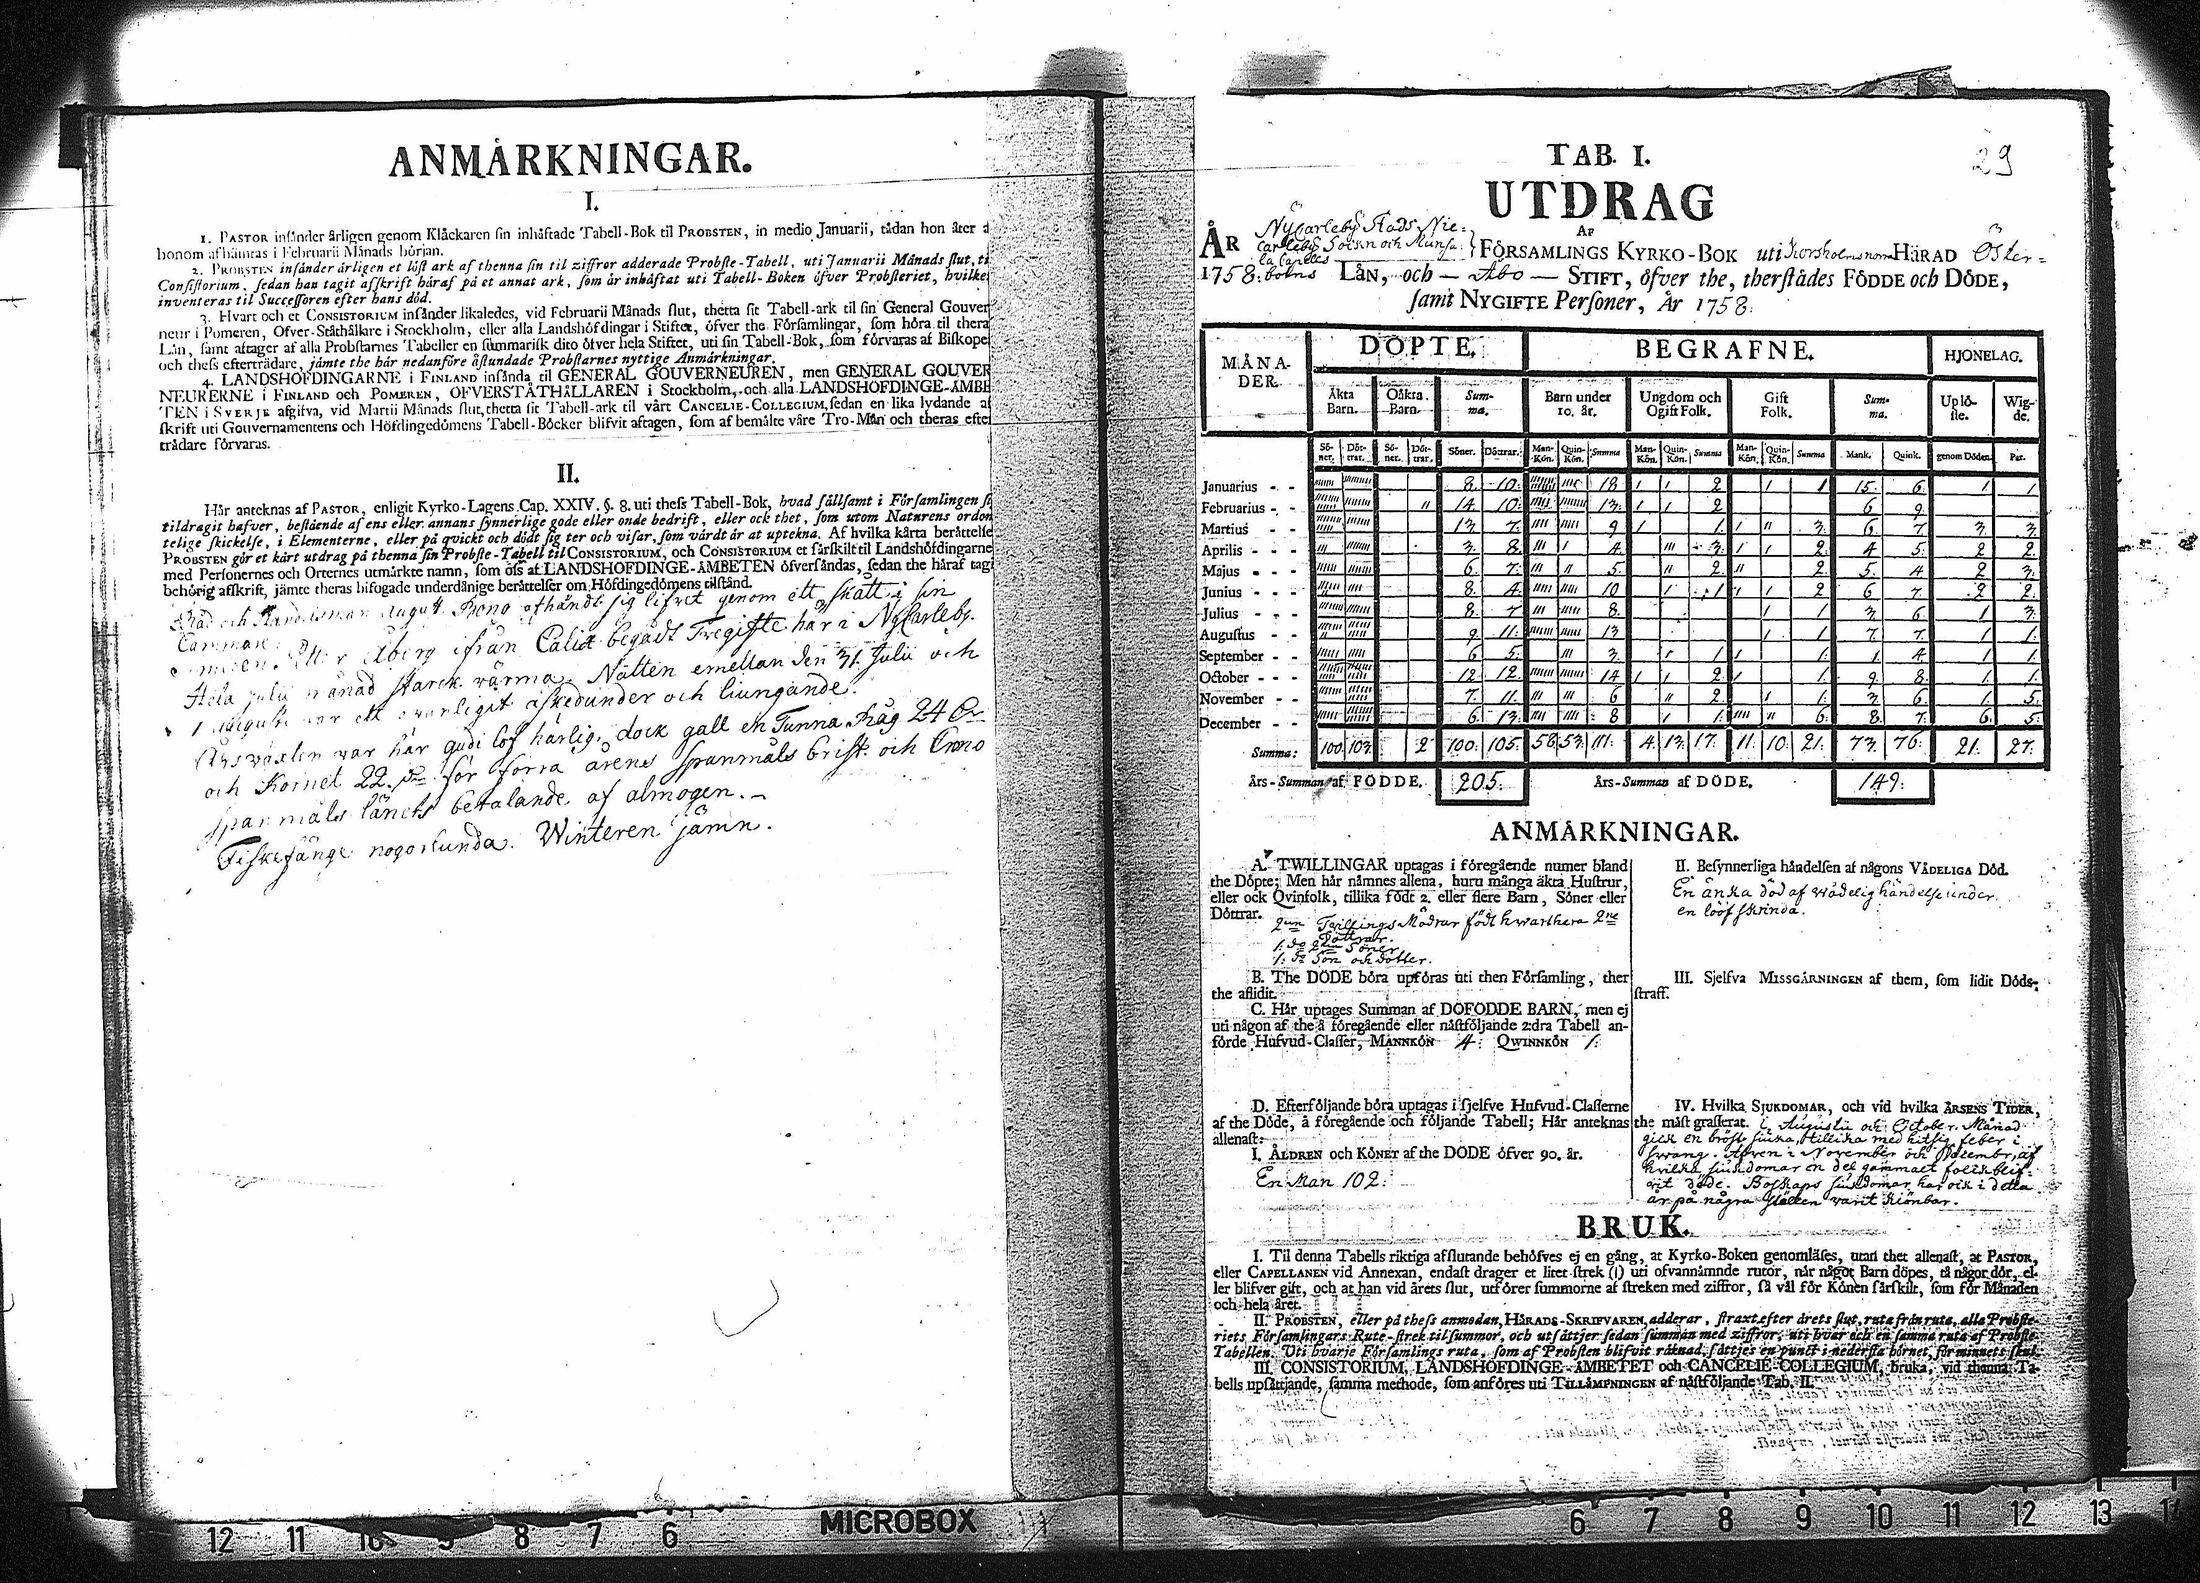 ANMÄRKNINGAR.
I.
1. PASTOR insänder årligen genom Klåckaren sin inhäftade Tabell-Bok til PROBSTEN, in medio Januarii, tådan hon åter a
honom afhämtas i Februarii Månads början.
2. PROBSTEN insänder årligen et löst ark af thenna sin til ziffror adderade Probste-Tabell, uti Januarii Månads slut, ti
Consistorium, sedan han tagit afskrift häraf på et annat ark, som är inhäftat uti Tabell-Boken öfver Probsteriet, hvilke
inventeras til Successoren efter hans död.
3. Hvart och et CONSISTORIUM insänder likaledes, vid Februarii Månads slut, thetta sit Tabell-ark til sin General Gouver
neur i Pomeren, Öfver-Ståthållare i Stockholm, eller alla Landshöfdingar i Stiftet, öfver the Församlingar, som höra til thera
Län, samt aftager af alla Probstarnes Tabeller en summarisk dito öfver hela Stiftet, uti sin Tabell-Bok, som förvaras af Biskope
och thess efterträdare, jämte the här nedanföre åstundade Probstarnes nyttige Anmärkningar.
4. LANDSHÖFDINGARNE i FINLAND insända til GENERAL GOUVERNEUREN, men GENERAL GOUVER
NEURERNE i FINLAND och POMEREN, ÖFVERSTÅTHÅLLAREN i Stockholm, och alla LANDSHÖFDINGE-ÄMBE
TEN i SVERJE afgifva, vid Martii Månads slut, thetta sit Tabell-ark til vårt CANCELIE-COLLEGIUM, sedan en lika lydande af
skrift uti Gouvernamentens och Höfdingedömens Tabell-Böcker blifvit aftagen, som af bemälte våre Tro-Män och theras efte
trädare förvaras.
II.
Här anteknas af PASTOR, enligit Kyrko-Lagens Cap. XXIV. §. 8. uti thess Tabell-Bok, hvad sällsamt i Församlingen s
tildragit hafver, bestående af ens eller annans synnerlige gode eller onde bedrift, eller ock thet, som utom Naturens orden
telige skickelse, i Elementerne, eller på qvickt och dödt sig ter och visar, som värdt är at uptekna. Af hvilka kårta berättelse
PROBSTEN gör et kårt utdrag på thenna sin Probste-Tabell til CONSISTORIUM, och CONSISTORIUM et särskilt til Landshöfdingarne
med Personernes och Orternes utmärkte namn, som oss af LANDSHÖFDINGE-ÄMBETEN öfversändas, sedan the häraf tagi
behörig afskrift, jämte theras bifogade underdånige berättelser om Höfdingedömens tilstånd.
Råd och Handelsman August afhände sig lifvet genom ett skått i sin
Cammar. Åberg ifrån Calix begådt Tregifte här i NyCarleby.
Hela julii månad starck värma. Natten emellan den 31. Julii och
1 Augusti war ett owanligit åskedunder och liungande.
Årswäxten war här gudi lof härlig, dock gall en Tunna Råg 24 Dr
och Kornet 22. Dr för förra årens spanmåls brist och Crono
spanmåls lånets betalande af almogen. –
Fiskefänge nogorlunda. Winteren jämn.
29
TAB. I.
UTDRAG
AF
ÅR 1758. NyCarleby Stads Nie-
carleby Sockn och Munsa-
la Capells FÖRSAMLINGS KYRKO-BOK uti Korsholms norra HÄRAD Öster-
botns LÄN, och — Åbo — STIFT, öfver the, therstädes FÖDDE och DÖDE,
samt NYGIFTE Personer, År 1758.
MÅNADER. DÖPTE. BEGRAFNE. HJONELAG.
Äkta Barn. Oäkta Barn. Summa. Barn under 10. år. Ungdom och Ogift Folk. Gift Folk. Summa. Uplöste. Wigde.
Söner. Döttrar. Söner. Döttrar. Söner. Döttrar. Man-Kön. Quin-Kön. Summa Man-Kön. Quin-Kön. Summa Man-Kön. Quin-Kön. Summa Mank. Quink. genom Döden. Par.
Januarius - - 8. 10. 18 1 1 2 1 1 15. 6. 1 1
Februarius - - 14 10. 13. 1 1 2 6 9
Martius - - 13 7. 9 1 1. 1 11 3. 6 7 3 3.
Aprilis - - - 3. 8. 4. 3. 1 1 2. 4 5. 2 2.
Majus - - - 6. 7. 5. 2. 2. 5. 4 2 3.
Junius - - - 8. 4. 10 1 1 1 1 2 6 7. 2 2.
Julius - - - 8. 7 8. 1 1 3 6 1 3.
Augustus - - 9 11. 13 1 1. 7 7. 1 1.
September - - 6 5. 3. 1 1 1 1. 1. 4. 1 1.
October - - 12 12. 14 1 1 2 1 1. 9 8. 1 1.
November - - 7. 11. 6 2. 1 1. 3 6. 1 5.
December - - 6. 13. 8 1 1. 6. 8. 7. 6. 5.
Summa: 100 103. 2 100. 105. 58. 53. 111. 4. 13. 17. 11. 10. 21. 73. 76. 21. 27.
Års-Summan af FÖDDE. 205. Års-Summan af DÖDE. 149.
ANMÄRKNINGAR.
A. TWILLINGAR uptagas i föregående numer bland
the Döpte; Men här nämnes allena, huru många äkta Hustrur,
eller ock Qvinfolk, tillika födt 2. eller flere Barn, Söner eller
Döttrar. 2ne Twillings Mödrar födt hwarthera 2ne
Döttrar.
1. do 2ne Söner
1. do Son och Dotter.
B. The DÖDE böra upföras uti then Församling, ther
the aflidit.
C. Här uptages Summan af DÖFÖDDE BARN, men ej
uti någon af the å föregående eller nästföljande 2:dra Tabell an-
förde Hufvud-Classer, MANNKÖN 4. QWINNKÖN 1.
D. Efterföljande böra uptagas i sjelfve Hufvud-Classerne
af the Döde, å föregående och följande Tabell; Här anteknas
allenast:
I. ÅLDREN och KÖNET af the DÖDE öfver 90. år.
En Man 102.
II. Besynnerliga händelsen af någons VÅDELIGA Död.
En änka död af wådelig händelse under
en lööf skrinda.
III. Sjelfva MISSGÄRNINGEN af them, som lidit Döds-
straff.
IV. Hvilka SJUKDOMAR, och vid hvilka ÅRSENS TIDER,
the mäst grasserat. i Augustii och October Månad
gick en bröst siuka tillika med hitsig feber i
swang. Äfven i November och Decembr, af
hvilka siukdomar en del gammalt folck blif-
wit döde. Boskaps siukdomar har ock i detta
år på några ställen warit kiönbar.
BRUK.
I. Til denna Tabells riktiga afslutande behöfves ej en gång, at Kyrko-Boken genomläses, utan thet allenast, at PASTOR,
eller CAPELLANEN vid Annexan, endast drager et litet strek (I) uti ofvannämnde rutor, när något Barn döpes, tå någor dör, el-
ler blifver gift, och at han vid årets slut, utförer summorne af streken med ziffror, så väl för Könen särskilt, som för Månaden
och hela året.
II. PROBSTEN, eller på thess anmodan, HÄRADS-SKRIFVAREN, adderar, straxt efter årets slut, ruta från ruta, alla Probste-
riets Församlingars Rute-strek til summor, och utsättjer sedan summan med ziffror, uti hvar och en samma ruta af Probste-
Tabellen. Uti hvarje Församlings ruta, som af Probsten blifvit räknad, sättjes en punct i nedersta hörnet, för minnets skul.
III. CONSISTORIUM, LANDSHÖFDINGE-ÄMBETET och CANCELIE-COLLEGIUM, bruka, vid thenna Ta-
bells upsättjande, samma methode, som anföres uti TILLÄMPNINGEN af nästföljande Tab. II.
12 11 10 9 8 7 6 MICROBOX 6 7 8 9 10 11 12 13 14